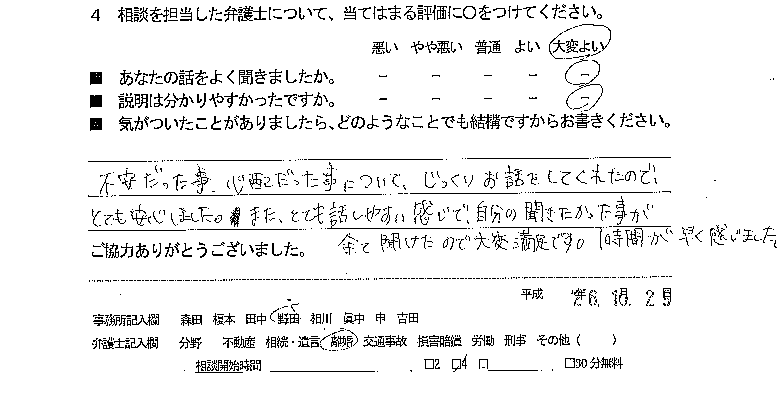 4 相談を担当した弁護士について、当てはまる評価に〇をつけてください。
悪い やや悪い 普通 よい 大変よい
■ あなたの話をよく聞きましたか。 － － － － －
■ 説明は分かりやすかったですか。 － － － － －
■ 気がついたことがありましたら、どのようなことでも結構ですからお書きください。
不安だった事、心配だった事について、じっくりお話をしてくれたので、
とても安心しました。また、とても話しやすい感じで、自分の聞きたかった事が
全て聞けたので大変満足です。1時間が早く感じました
ご協力ありがとうございました。
平成 26.10.2
事務所記入欄 森田 榎本 田中 野田 相川 眞中 申 吉田
弁護士記入欄 分野 不動産 相続・遺言 離婚 交通事故 損害賠償 労働 刑事 その他（ ）
相談開始時間 □2 □4 □ □30分無料